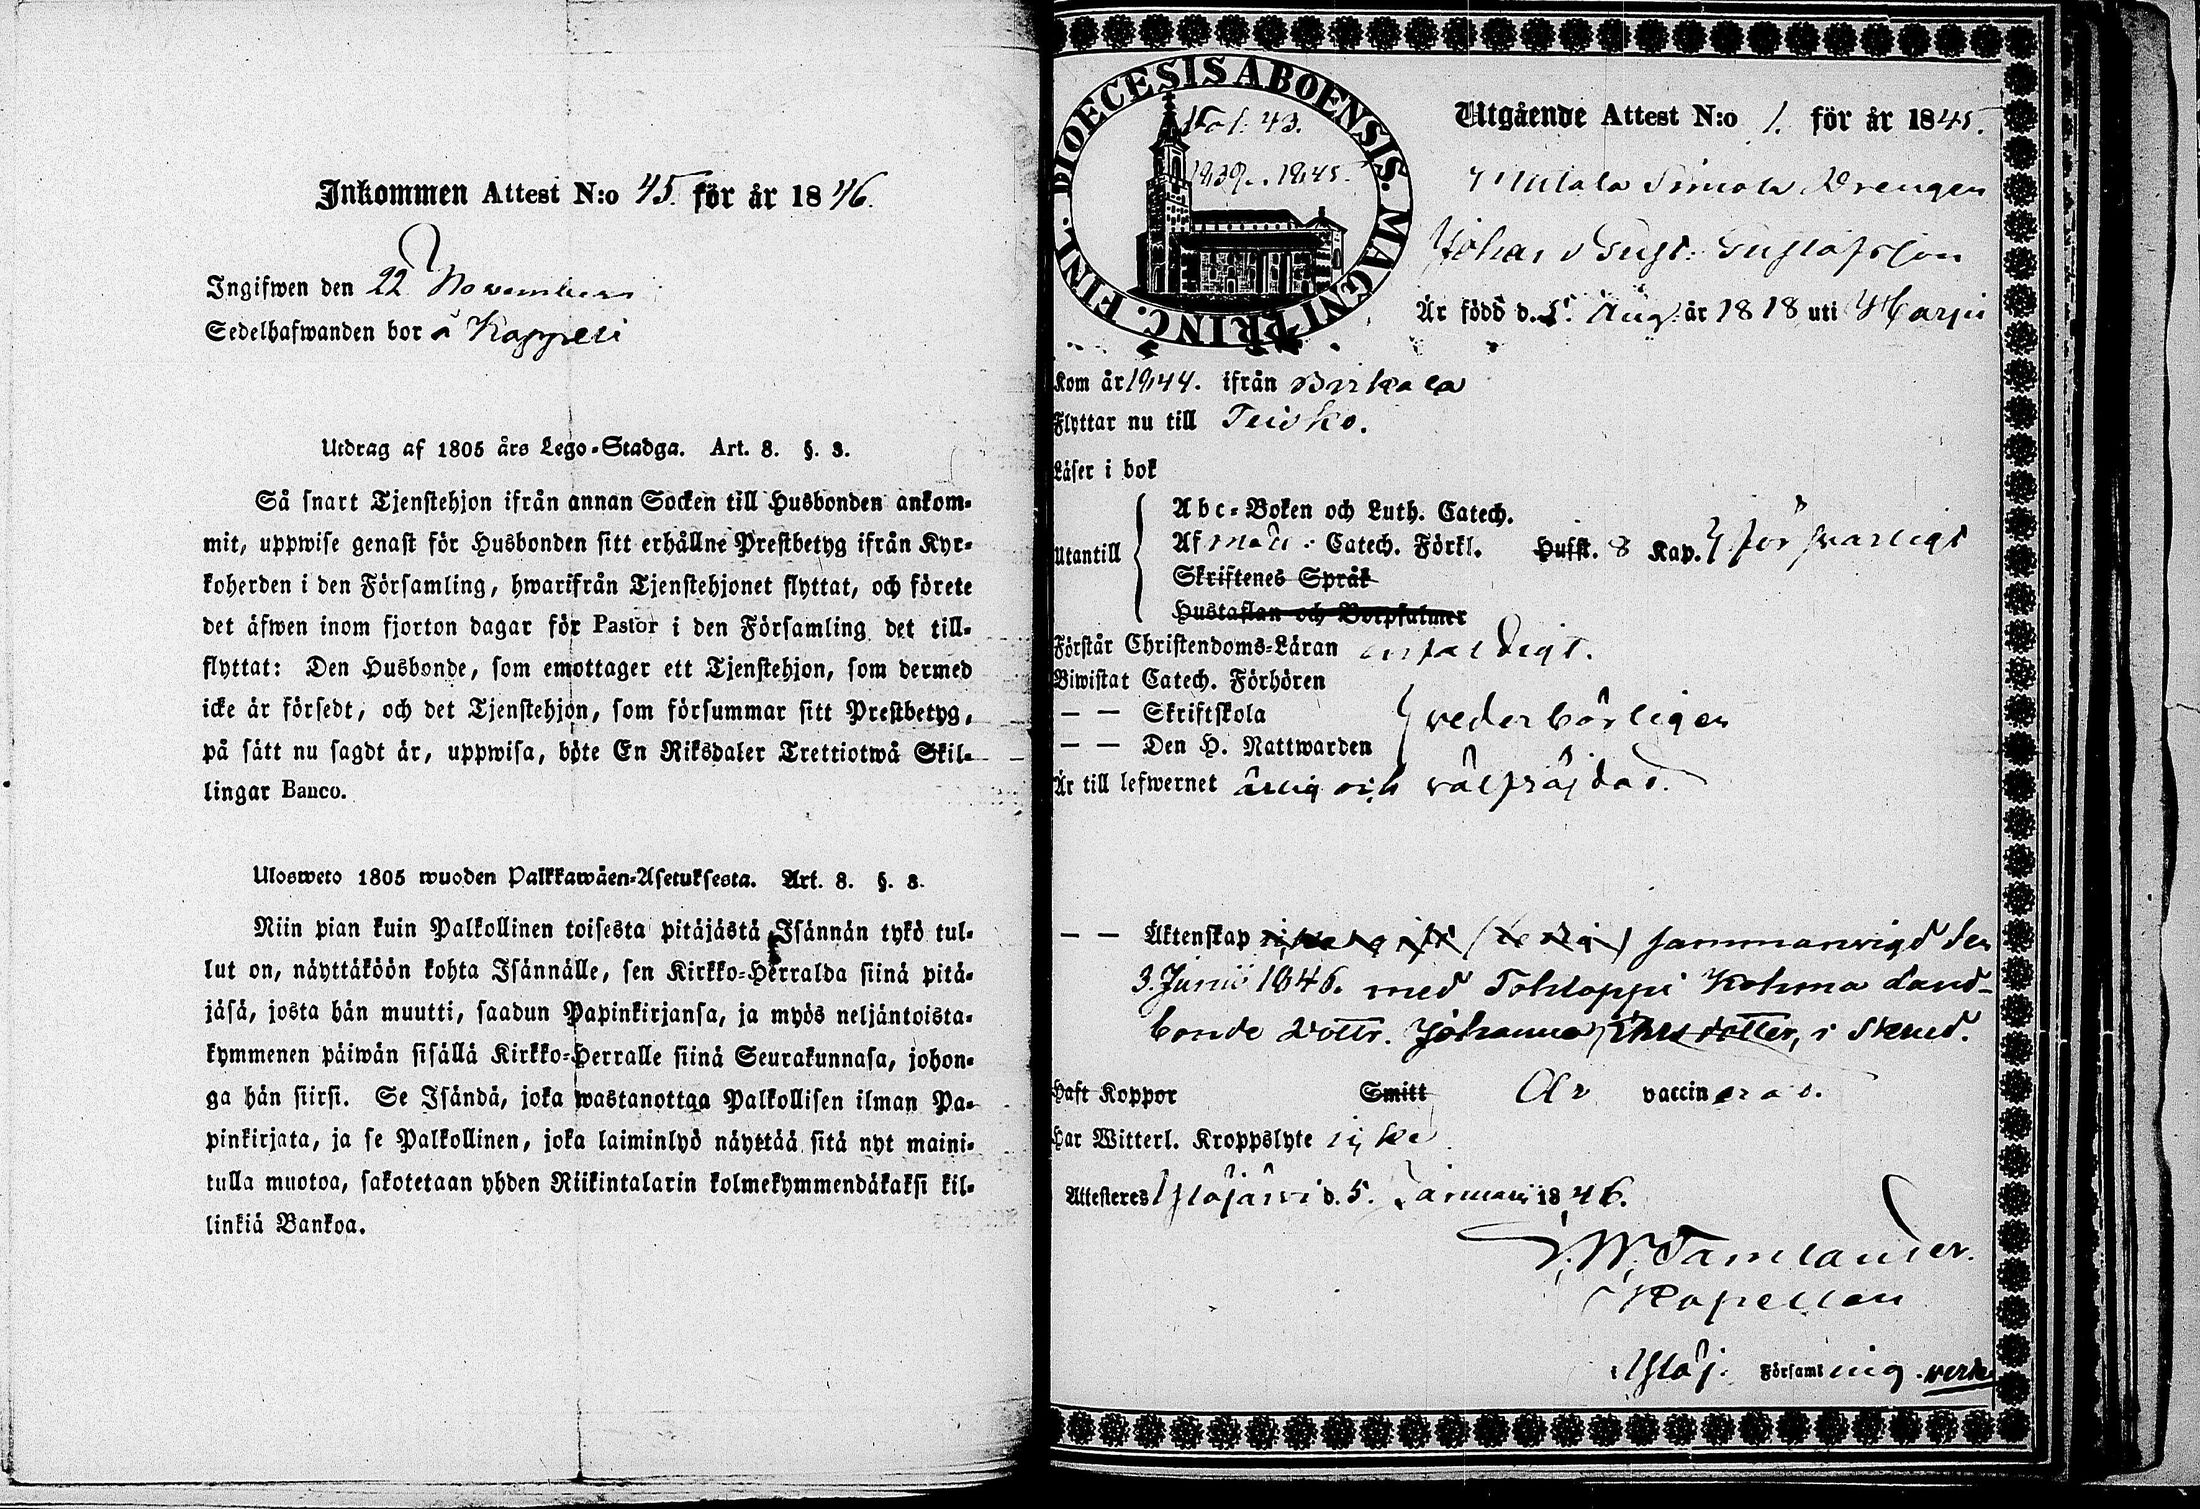 Inkommen Attest N:o 45. för år 1846.
Ingifwen den 22 November
Sedelhafwanden bor å Kappeli
Utdrag af 1805 års Lego-Stadga. Art. 8. §. 3.
Så snart Tjenstehjon ifrån annan Socken till Husbonden ankom-
mit, uppwise genast för Husbonden sitt erhållne Prestbetyg ifrån Kyr-
koherden i den Församling, hwarifrån Tjenstehjonet flyttat, och förete
det äfwen inom fjorton dagar för Pastor i den Församling det till-
flyttat: Den Husbonde, som emottager ett Tjenstehjon, som dermed
icke är försedt, och det Tjenstehjon, som försummar sitt Prestbetyg,
på sätt nu sagdt är, uppwisa, böte En Riksdaler Trettiotwå Skil-
lingar Banco.
Ulosweto 1805 wuoden Palkkawäen-Asetuksesta. Art. 8. §. 3.
Niin pian kuin Palkollinen toisesta pitäjästä Isännän tykö tul-
lut on, näyttäköön kohta Isännälle, sen Kirkko-Herralda siinä pitä-
jäsä, josta hän muutti, saadun Papinkirjansa, ja myös neljäntoista-
kymmenen päiwän sisällä Kirkko-Herralle siinä Seurakunnasa, johon-
ga hän siirsi. Se Isändä, joka wastanottaa Palkollisen ilman Pa-
pinkirjata, ja se Palkollinen, joka laiminlyö näyttää sitä nyt maini-
tulla muotoa, sakotetaan yhden Riikintalarin kolmekymmendäkaksi kil-
linkiä Bankoa.
DIOECESIS ABOENSIS. MAGNI PRINC. FINL.
Fol. 43.
1839-1845.
Utgående Attest N:o 1. för år 1845.
Simola Drengen
Johan Gust: Gustafsson
Är född d. 5. Aug. år 1818 uti Harju
Kom år 1844. ifrån Birkala
Flyttar nu till Teisko.
Läser i bok
Utantill
Abc-Boken och Luth. Catech.
Af Catech. Förkl. Husst. 8 Kap. försvarligt
Skriftenes Språk
Hustaflan och Botpsalmer
Förstår Christendoms-Läran enfaldigt.
Biwistat Catech. Förhören
— — Skriftskola
— — Den H. Nattwarden
vederbörligen
Är till lefwernet ärlig och välfräjdad.
— — Äktenskap sammanvigd den
3. Junii 1846. med Tohloppi Kohma Land-
bonde Dottr. Johanna dotter, i Sked.
Haft Koppor Smitt Är vaccinerad.
Har Witterl. Kroppslyte icke
Attesteres Ylöjärvi d. 5. Januarii 1846.
Tamlander.
Kapellan
i Ylöj. Församling. verk